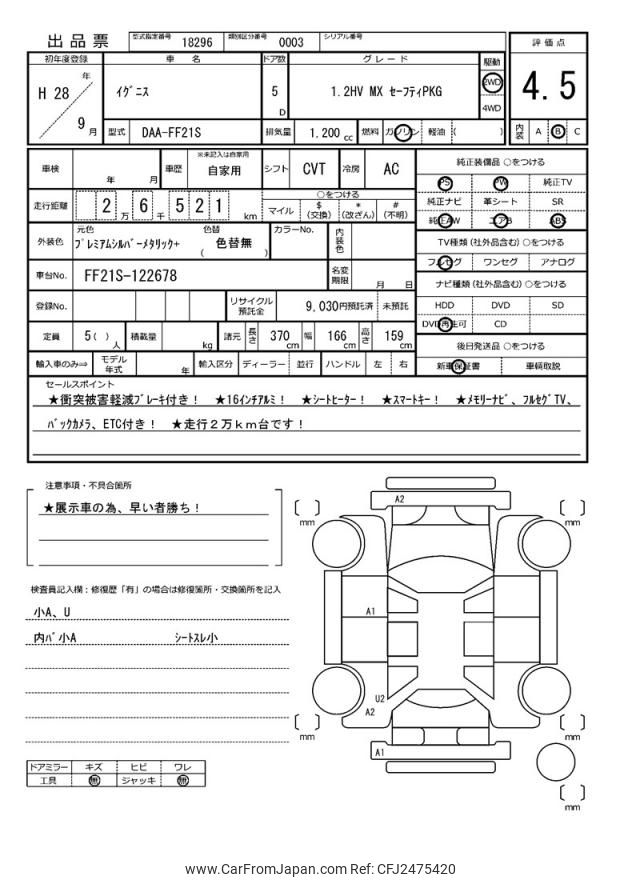 出品票 型式指定番号 18296 類別区分番号 0003 シリアル番号
評価点
初年度登録 車名 ドア数 グレード 駆動
H 28 年 9 月 イグニス 5 D 1.2HV MX セーフティPKG 2WD 4WD
4.5
型式 DAA-FF21S 排気量 1,200 cc 燃料 ガソリン 軽油 ( )
内装 A B C
車検 年 月 車歴 ※未記入は自家用 自家用 シフト CVT 冷房 AC
純正装備品 ○をつける
PS PW 純正TV
走行距離 2 万 6 千 5 2 1 km
○をつける
マイル $ (交換) * (改ざん) # (不明)
純正ナビ 革シート SR
純正AW エアB ABS
外装色 元色 プレミアムシルバーメタリック+ 色替 ( 色替無 ) カラーNo. 内装色
TV種類 (社外品含む) ○をつける
フルセグ ワンセグ アナログ
車台No. FF21S-122678 名変期限 月 日
ナビ種類 (社外品含む) ○をつける
登録No. リサイクル預託金 9,030円預託済 未預託
HDD DVD SD
DVD再生可 CD
定員 5 ( ) 人 積載量 kg 諸元 長さ 370 cm 幅 166 cm 高さ 159 cm
後日発送品 ○をつける
輸入車のみ⇒ モデル年式 年 輸入区分 ディーラー 並行 ハンドル 左 右
新車保証書 車輌取説
セールスポイント
★衝突被害軽減ブレーキ付き! ★16インチアルミ! ★シートヒーター! ★スマートキー! ★メモリーナビ、フルセグTV、
バックカメラ、ETC付き! ★走行2万km台です!
注意事項・不具合箇所
★展示車の為、早い者勝ち!
検査員記入欄:修復歴「有」の場合は修復箇所・交換箇所を記入
小A、U
内バ小A シートスレ小
ドアミラー キズ ヒビ ワレ
工具 無 ジャッキ 無
A2
mm
mm
A1
U2
A2
mm
mm
A1
mm
www.CarFromJapan.com Ref: CFJ2475420